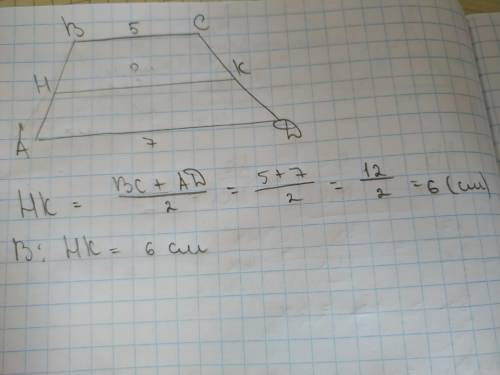 B 5 C
H ? K
A 7 D
HK = \frac{BC + AD}{2} = \frac{5+7}{2} = \frac{12}{2} = 6 (см)
В: HK = 6 см